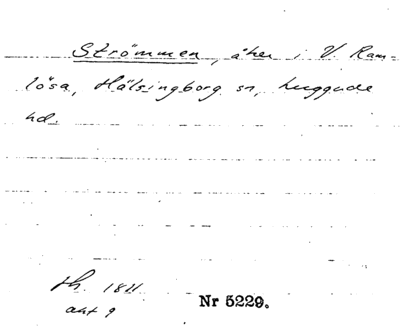 Strömmen, åker i V Ram-
lösa, Hälsingborg sn, Luggude
hd.
fh. 1811
akt 9
Nr 5229.